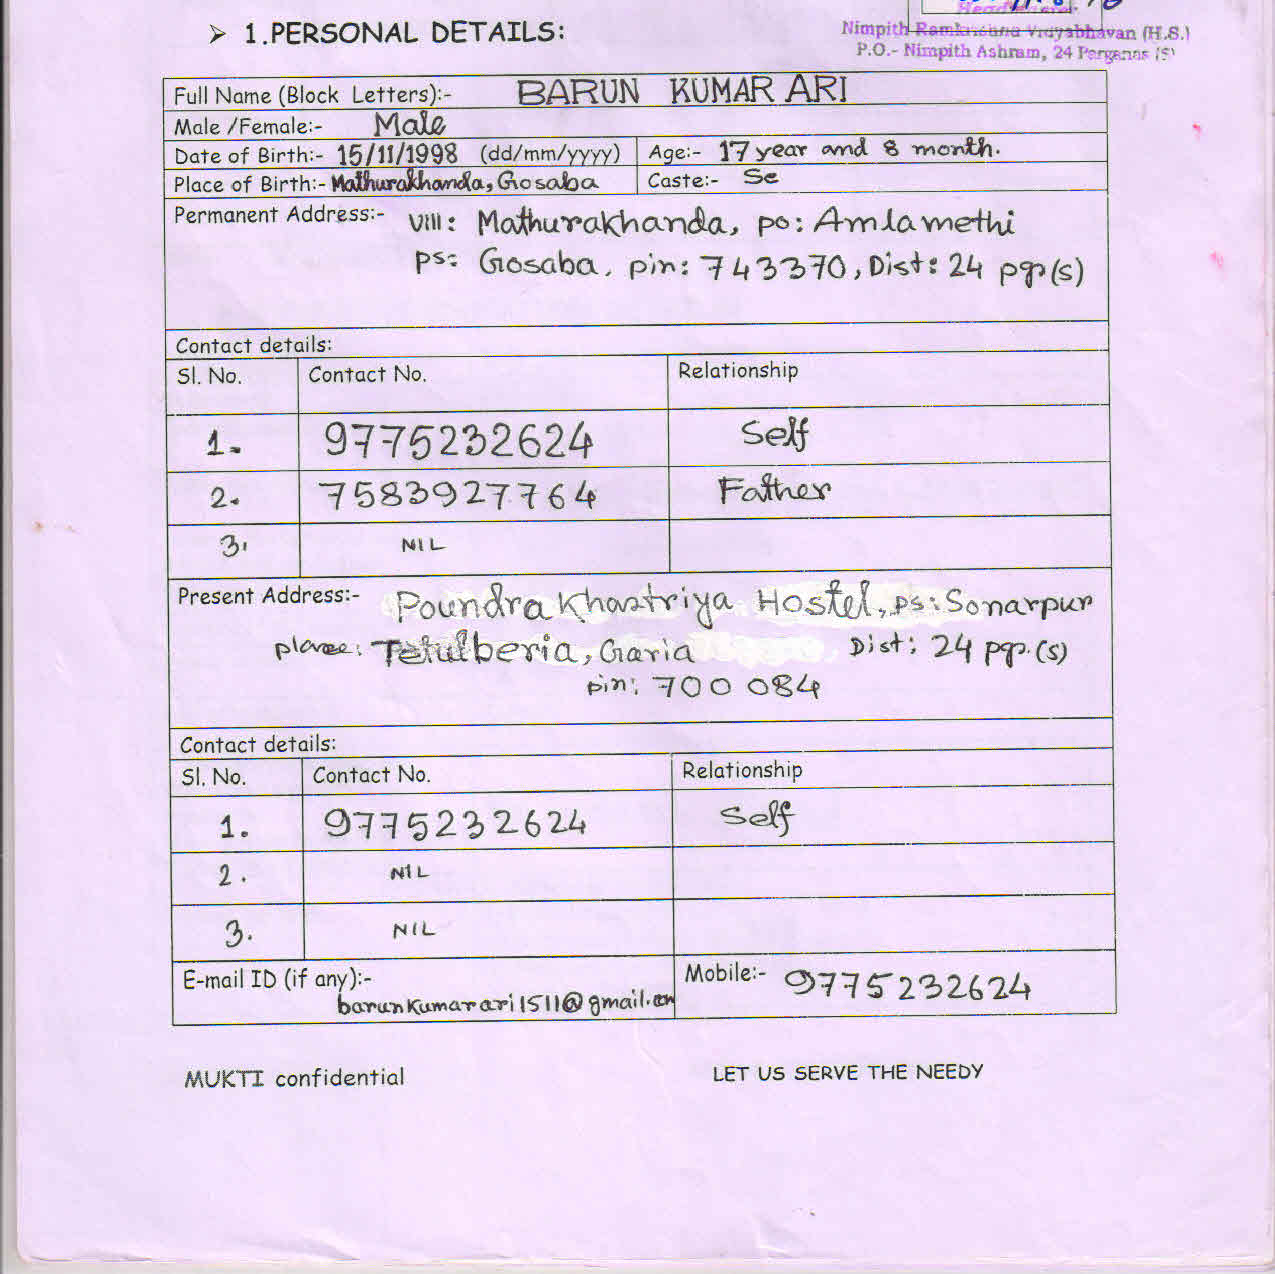 Headmaster
Nimpith Ramkrishna Vidyabhavan (H.S.)
P.O.- Nimpith Ashram, 24 Parganas (S)
➢ 1.PERSONAL DETAILS:
Full Name (Block Letters):- BARUN KUMAR ARI
Male /Female:- Male
Date of Birth:- 15/11/1998 (dd/mm/yyyy) Age:- 17 year and 8 month.
Place of Birth:- Mathurakhanda, Gosaba Caste:- Sc
Permanent Address:- Vill: Mathurakhanda, po: Amlamethi
ps: Gosaba, pin: 743370, Dist: 24 pgp(s)
Contact details:
Sl. No. Contact No. Relationship
1. 9775232624 Self
2. 7583927764 Father
3. NIL
Present Address:- Poundra Khastriya Hostel, ps: Sonarpur
place: Tetulberia, Garia Dist: 24 pgp.(s)
pin: 700 084
Contact details:
Sl. No. Contact No. Relationship
1. 9775232624 Self
2. NIL
3. NIL
E-mail ID (if any):- Mobile:- 9775232624
barunkumarari1511@gmail.com
MUKTI confidential LET US SERVE THE NEEDY